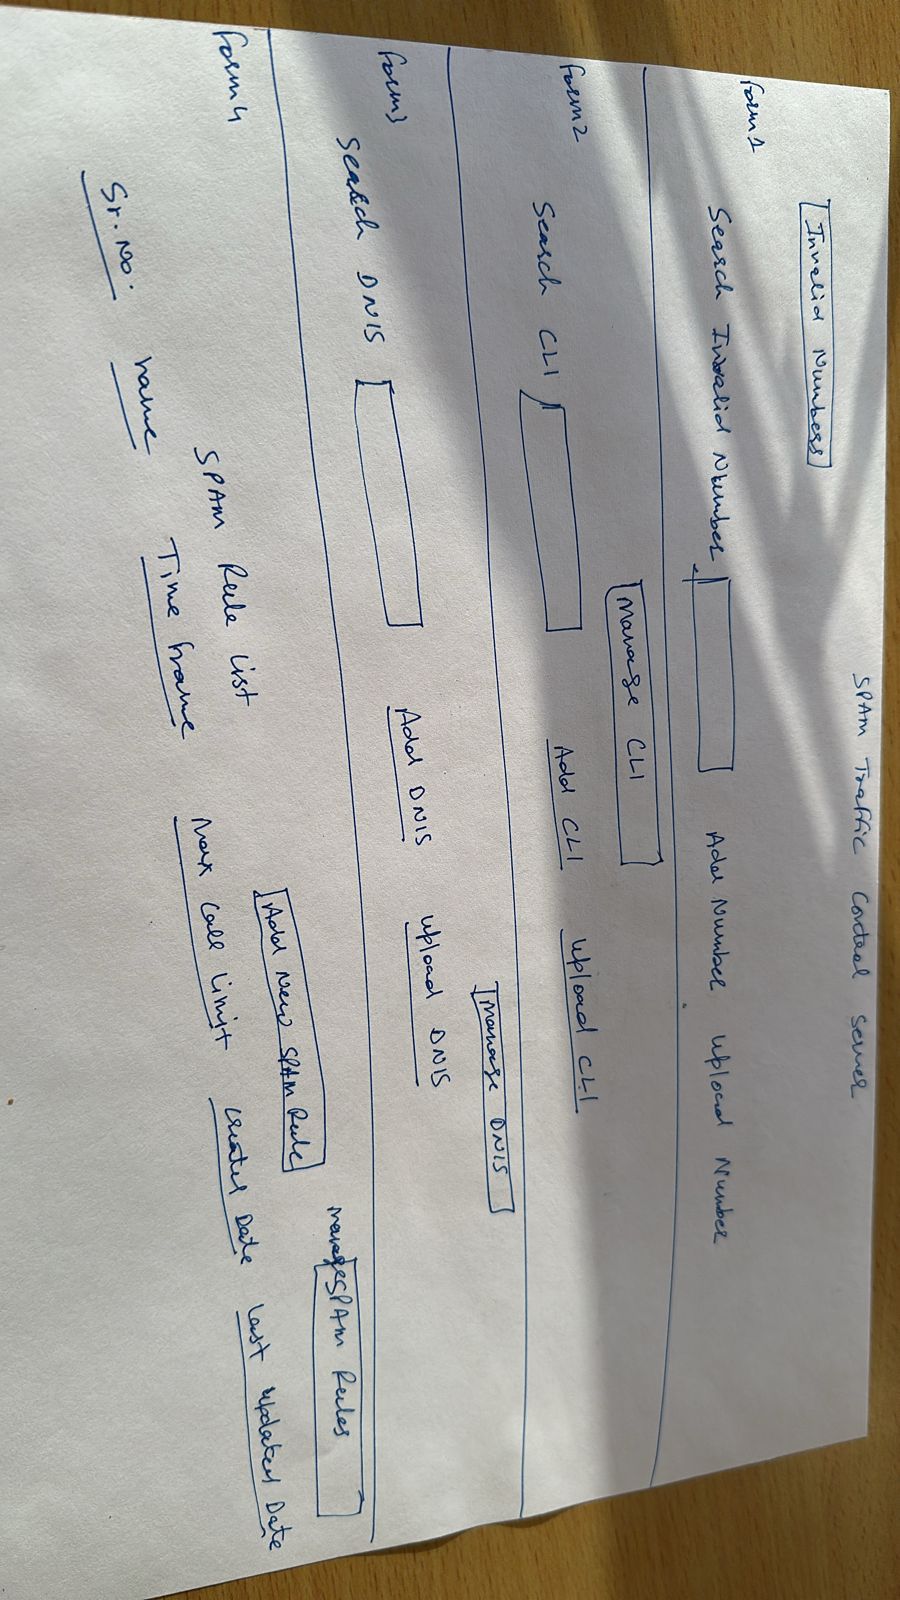 SPAM Traffic Control Server
Invalid Numbers
Form1
Search Invalid Number Add Number Upload Number
Manage CLI
Form2
Search CLI Add CLI Upload CLI
Manage DNIS
Form3
Search DNIS Add DNIS Upload DNIS
Manage SPAM Rules
Add New SPAM Rule
Form4
SPAM Rule List
Sr. No. name Time frame Max Call Limit Created Date Last Updated Date